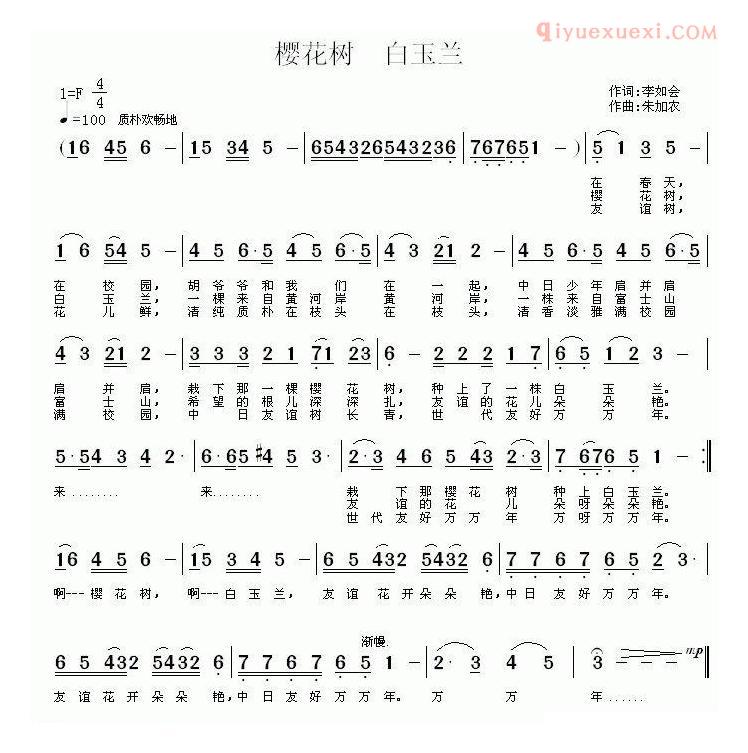 qiyuexuexi.com
樱花树 白玉兰
1=F 4/4
作词:李如会
作曲:朱加农
♩=100 质朴欢畅地
(16 45 6 - | 15 34 5 - | 654326543236 | 767651 - ) | 5 1 3 5 |
在 春 天,
樱 花 树,
友 谊 树,
1 6 54 5 - | 4 5 6·5 4 5 6·5 | 4 3 21 2 - | 4 5 6·5 4 5 6·5 |
在 校 园, 胡 爷 爷 和 我 们 在 一 起, 中 日 少 年 肩 并 肩
白 玉 兰, 一 棵 来 自 黄 河 岸 黄 河 岸, 一 株 来 自 富 士 山
花 儿 鲜, 清 纯 质 朴 在 枝 头 在 枝 头, 清 香 淡 雅 满 校 园
4 3 21 2 - | 2 2 2 1 2 71 23 | 6 - 2 2 2 1 7 | 6 5 1 2 3 |
肩 并 肩, 栽 下 那 一 棵 樱 花 树, 种 上 了 一 株 白 玉 兰。
富 士 山, 希 望 的 根 儿 深 深 扎, 友 谊 的 花 儿 朵 朵 艳。
满 校 园, 中 日 友 谊 树 长 青, 世 代 友 好 万 万 年。
5·54 3 4 2· | 6·65 #4 5 3· | 2·3 4 6 5 43 2·3 | 7 676 5 1 - :||
来........ 来......... 栽 下 那 樱 花 树 种 上 白 玉 兰。
友 谊 的 花 儿 朵 呀 朵 朵 艳。
世 代 友 好 万 万 年 万 呀 万 万 年。
16 4 5 6 - | 15 3 4 5 - | 6 5 432 5432 6 | 7 7 6 7 6 5 2 3· |
啊--- 樱 花 树, 啊--- 白 玉 兰, 友 谊 花 开 朵 朵 艳, 中 日 友 好 万 万 年,
渐慢
6 5 432 5432 6 | 7 7 6 7 6 5 1 - | 2· 3 4 5 | 3 - mp ||
友 谊 花 开 朵 朵 艳, 中 日 友 好 万 万 年。 万 万 年......